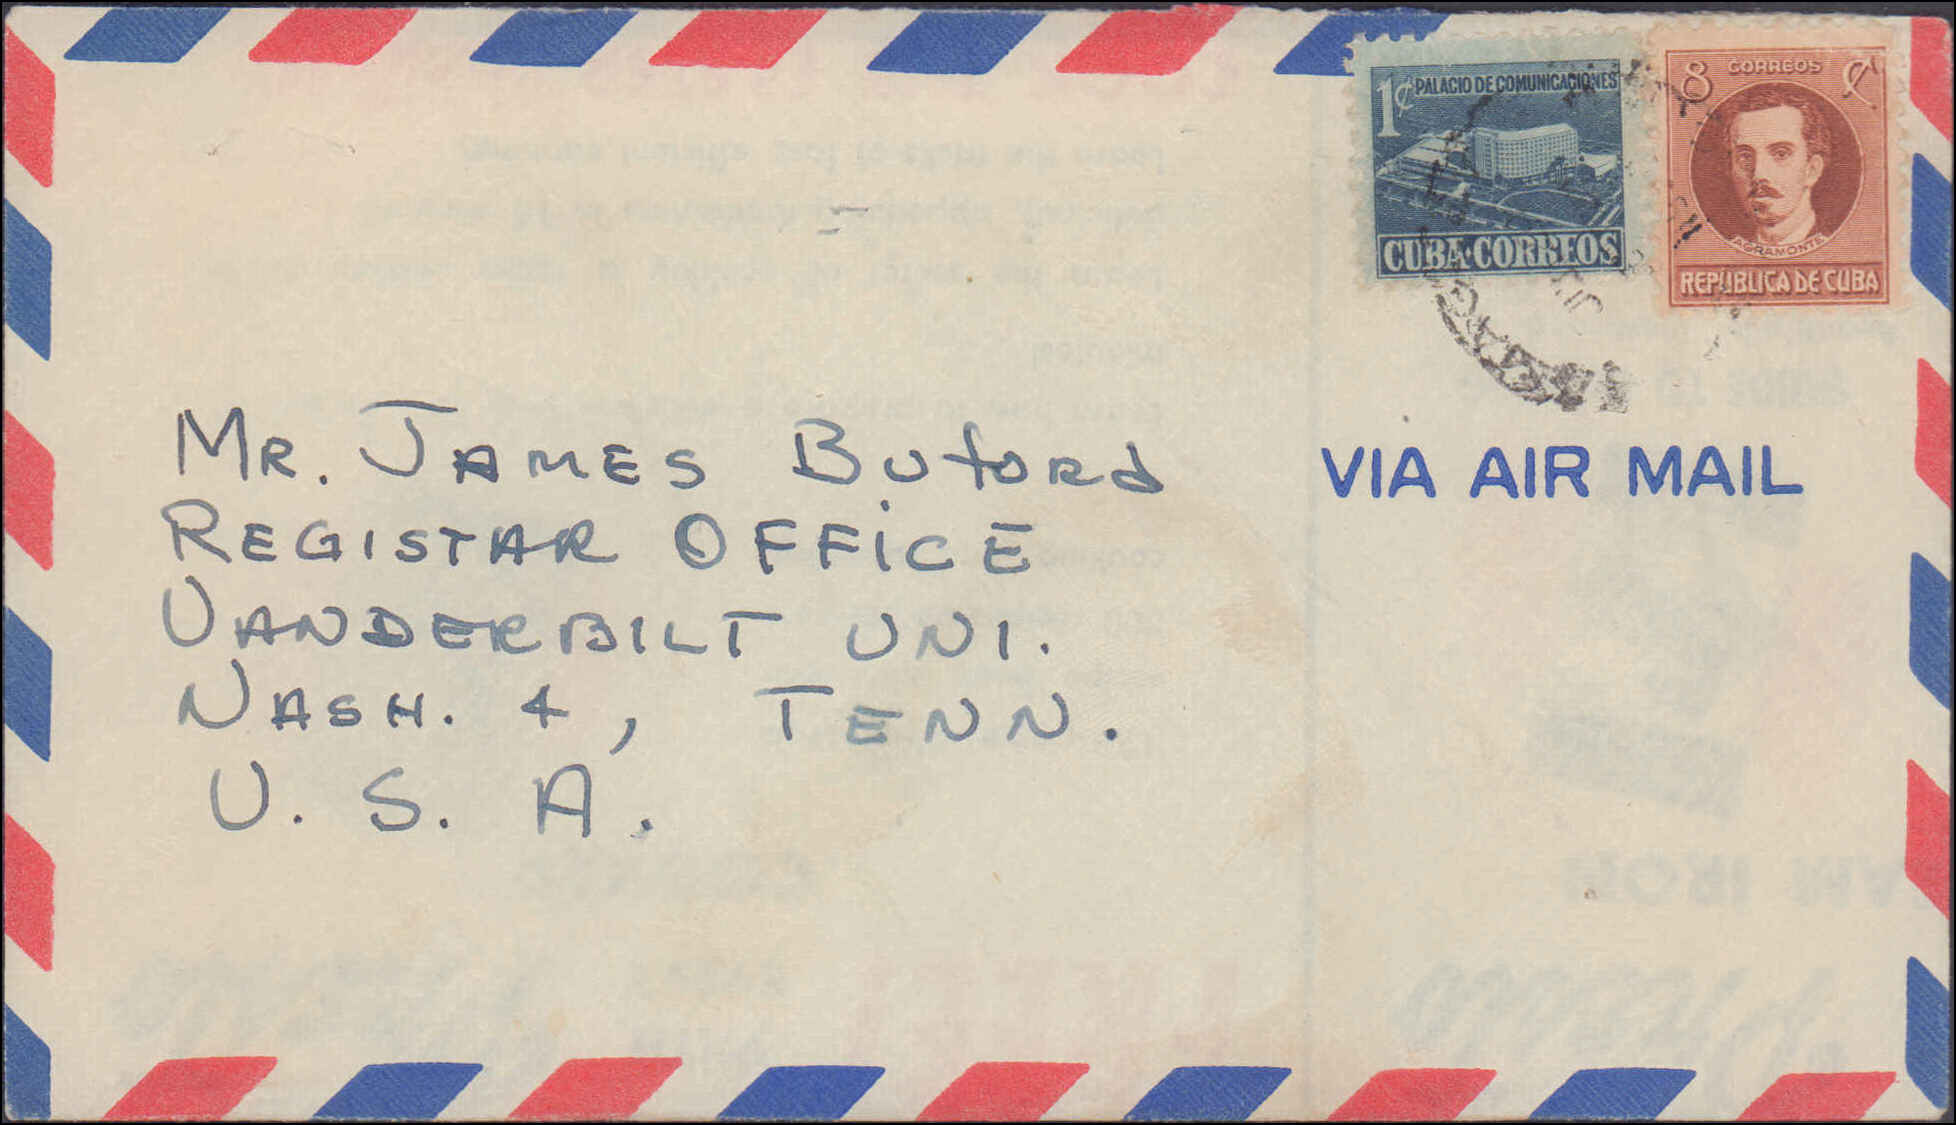 1¢ PALACIO DE COMUNICACIONES
CUBA·CORREOS
8 CORREOS ¢
AGRAMONTE
REPÚBLICA DE CUBA
VIA AIR MAIL
MR. JAMES BUFORD
REGISTAR OFFICE
VANDERBILT UNI.
NASH. 4, TENN.
U. S. A.